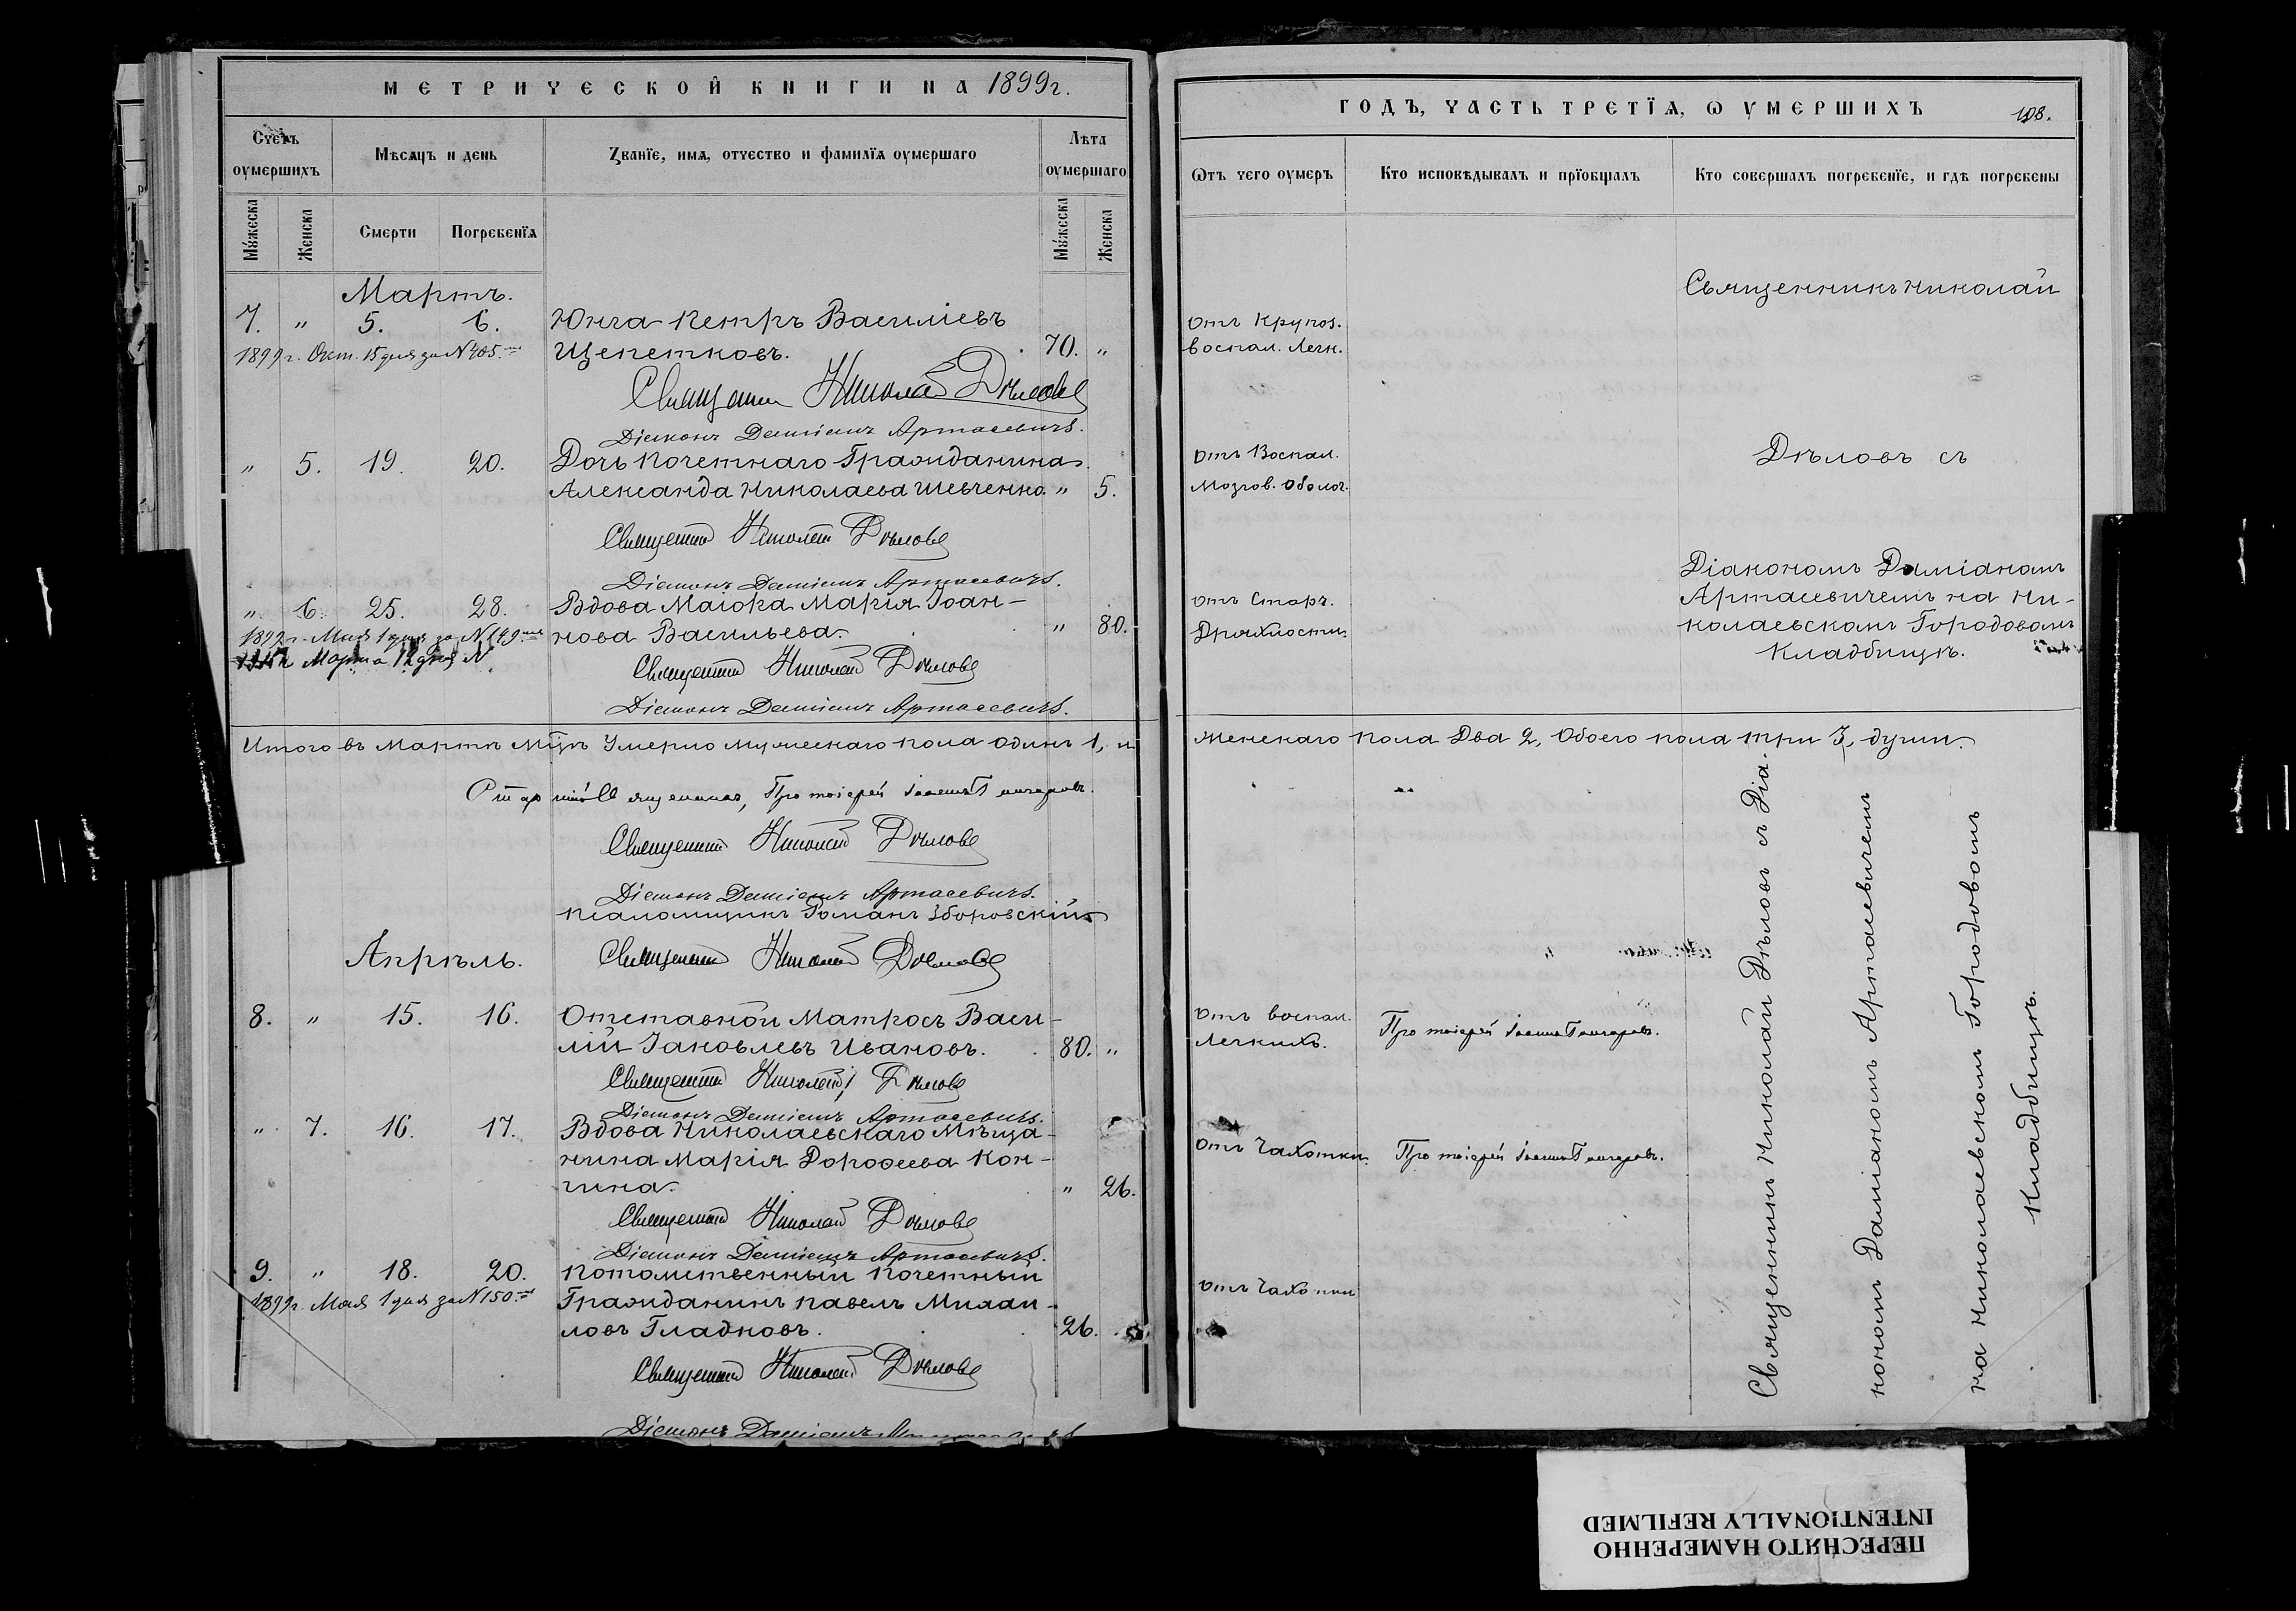 МЕТРИЧЕСКОЙ КНИГИ НА 1899г.
Счетъ оумершихъ
Мѣсяцъ и день
Званїе, имя, отчество и фамилїя оумершаго
Лѣта оумершаго
Мужеска
Женска
Смерти
Погребенїя
Мужеска
Женска
Мартъ.
7. " 5. 6. Юнга Петръ Васильевъ
1899г. Окт. 15 дня за № 405.
Щепетковъ. 70. "
Священникъ Николай Дѣловъ
Діаконъ Даміанъ Артасевичъ.
" 5. 19. 20. Дочь Почетнаго Гражданина
Александа Николаева Шевченко. " 5.
Священникъ Николай Дѣловъ
Діаконъ Даміанъ Артасевичъ.
" 6. 25. 28. Вдова Маіора Марія Іоан-
1899г. Мая 1 дня за № 149
нова Васильева. " 80.
Марта 12 дня №
Священникъ Николай Дѣловъ
Діаконъ Даміанъ Артасевичъ.
Итого въ Мартѣ мцѣ Умерло мужескаго пола одинъ 1, и
Старшій Священникъ, Протоіерей Іоаннъ Гончаровъ.
Священникъ Николай Дѣловъ
Діаконъ Даміанъ Артасевичъ.
Псаломщикъ Романъ Зборовскій
Апрѣль.
Священникъ Николай Дѣловъ
8. " 15. 16. Отставной Матросъ Васи-
лій Іаковлевъ Ивановъ. 80. "
Священникъ Николай Дѣловъ
Діаконъ Даміанъ Артасевичъ.
" 7. 16. 17. Вдова Николаевскаго Мѣща-
нина Марія Дороѳеева Кон-
гина. " 26.
Священникъ Николай Дѣловъ
Діаконъ Даміанъ Артасевичъ.
9. " 18. 20. Потомственный Почетный
1899г. Мая 1 дня за № 150
Гражданинъ Павелъ Михаи-
ловъ Гладковъ. 26.
Священникъ Николай Дѣловъ
Діаконъ Даміанъ
ГОДЪ, ЧАСТЬ ТРЕТЇЯ, Ѡ УМЕРШИХЪ
108.
Ѿтъ чего оумеръ
Кто исповѣдывалъ и прїобщалъ
Кто совершалъ погребенїе, и гдѣ погребены
Священникъ Николай
Отъ Крупоз.
воспал. Легк.
Отъ Воспал.
Мозгов. оболоч.
Дѣловъ съ
Діакономъ Даміаномъ
Отъ Старч.
Артасевичемъ на Ни-
Дряхлости.
колаевскомъ Городовомъ
Кладбищѣ.
женскаго пола Два 2, Обоего пола три 3, души.
Отъ воспал.
Легкихъ.
Протоіерей Іоаннъ Гончаровъ.
Отъ Чахотки.
Протоіерей Іоаннъ Гончаровъ.
Отъ Чахотки
Священникъ Николай Дѣловъ съ Діа-
кономъ Даміаномъ Артасевичемъ
на Николаевскомъ Городовомъ
Кладбищѣ.
ПЕРЕСНЯТО НАМЕРЕННО
INTENTIONALLY REFILMED